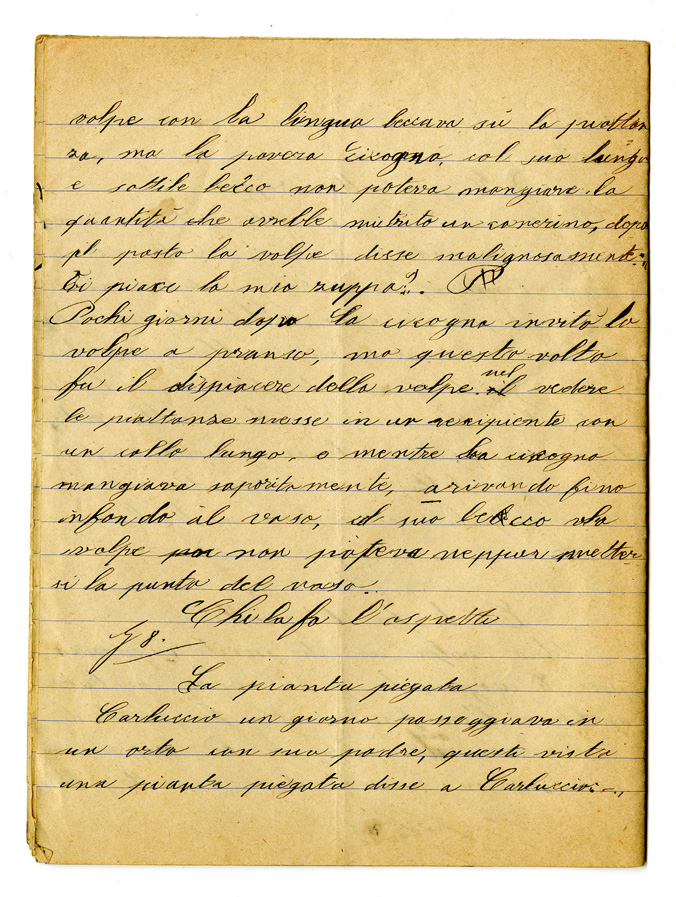 volpe con la lingua leccava sù la piattan
za, ma la povera cicogna, col suo lungo
e sottile becco non poteva mangiare la
quantità che avrebbe nutrito un canerino, dopo
il pasto la volpe disse malignosamente:
Ti piace la mia zuppa?.
Pochi giorni dopo la cicogna invitò la
volpe a pranso, ma questa volta
fu il dispiacere della volpe nel vedere
le piattanze messe in un recipiente con
un collo lungo, e mentre la cicogna
mangiava saporitamente, arivando fino
infondo al vaso, col suo becco la
volpe non poteva neppur metter
si la punta del vaso.
Chi la fa l'aspetti
8.
La pianta piegata
Carluccio un giorno passeggiava in
un orto con suo padre, questi vista
una pianta piegata disse a Carluccio: